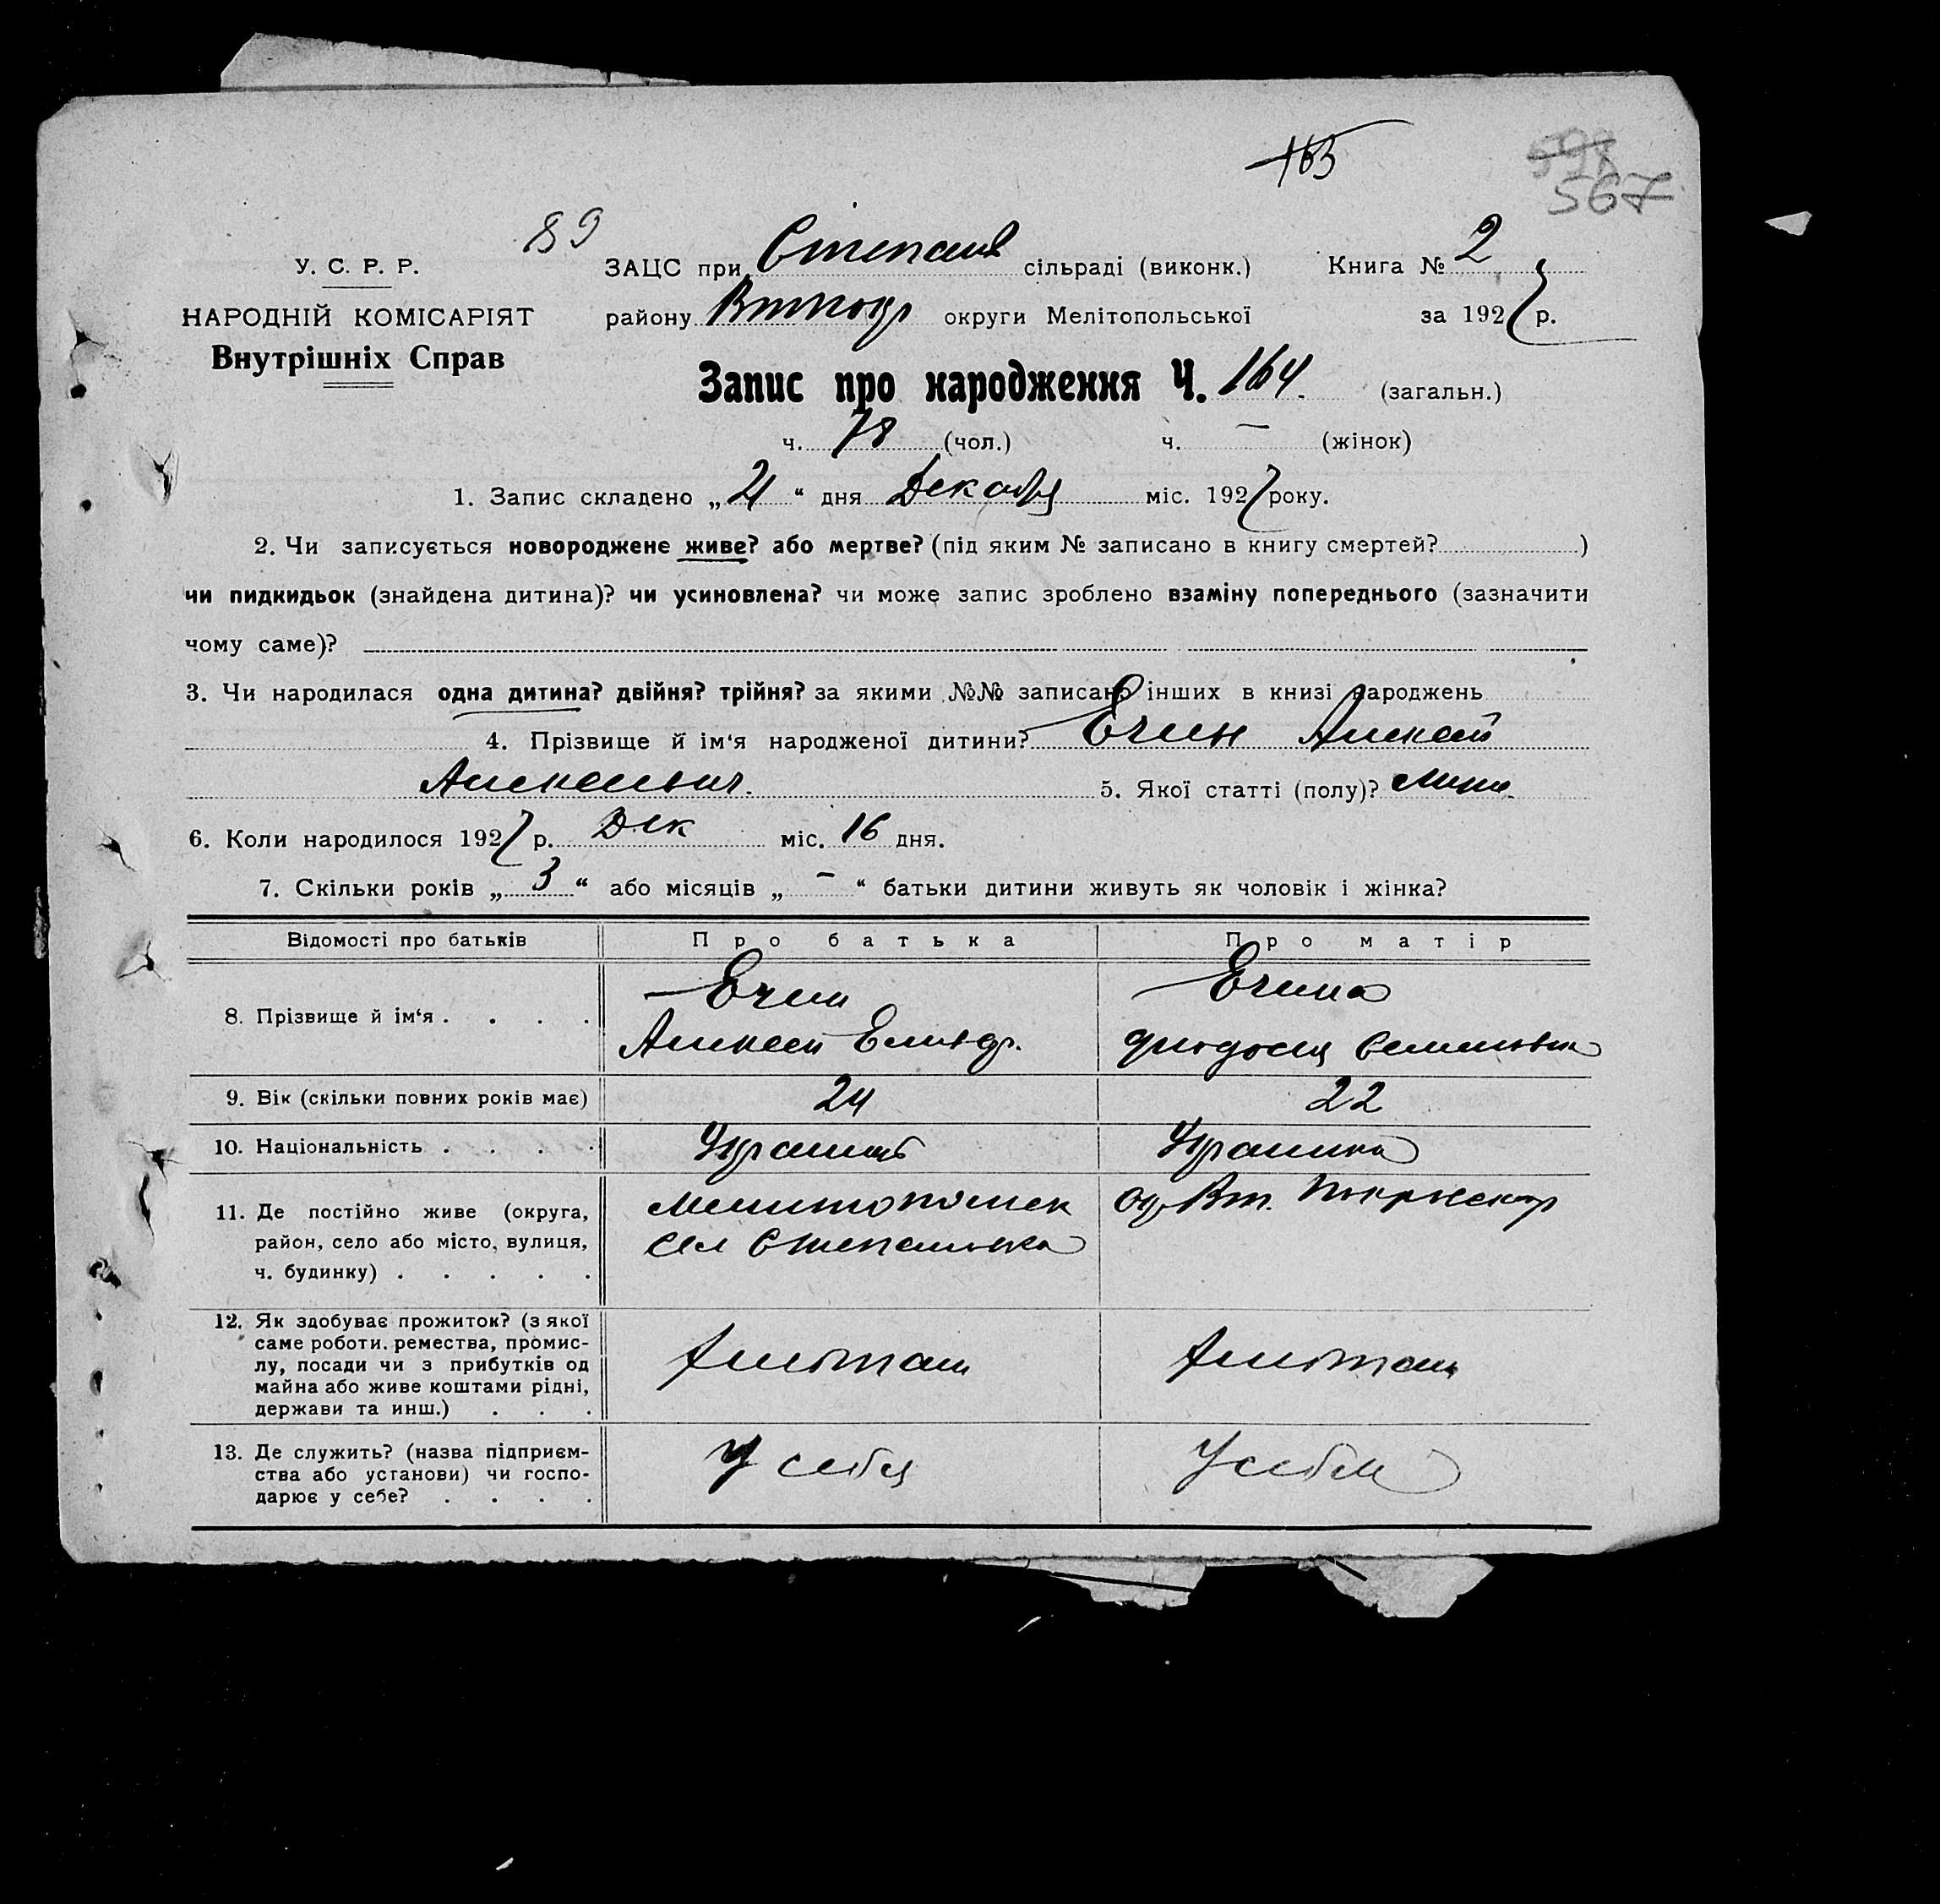 165
598
567
89
У. С. Р. Р.
НАРОДНІЙ КОМІСАРІЯТ
Внутрішніх Справ
ЗАЦС при Степанів сільраді (виконк.) Книга № 2
району Втпокр округи Мелітопольської за 1927 р.
Запис про народження Ч. 164. (загальн.)
ч. 78 (чол.) ч. — (жінок)
1. Запис складено „ 21 “ дня Декабря міс. 1927 року.
2. Чи записується новороджене живе? або мертве? (під яким № записано в книгу смертей? )
чи пидкидьок (знайдена дитина)? чи усиновлена? чи може запис зроблено взаміну попереднього (зазначити
чому саме)?
3. Чи народилася одна дитина? двійня? трійня? за якими №№ записано інших в книзі народжень
4. Прізвище й ім‘я народженої дитини? Ечин Алексей
Алексеевич. 5. Якої статті (полу)?
6. Коли народилося 1927 р. Дек міс. 16 дня.
7. Скільки років „ 3 “ або місяців „ — “ батьки дитини живуть як чоловік і жінка?
Відомості про батьків Про батька Про матір
8. Прізвище й ім‘я . . . .
Ечин
Алексей
Ечина
Феодосия Семеновна
9. Вік (скільки повних років має) 24 22
10. Національність . . . . Украинец Украинка
11. Де постійно живе (округа,
район, село або місто, вулиця,
ч. будинку) . . . . .
Мелитопольск Ок, Вт. Покровскар
Сел Степановка
12. Як здобуває прожиток? (з якої
саме роботи. ремества, промис-
лу, посади чи з прибутків од
майна або живе коштами рідні,
держави та инш.) . . .
13. Де служить? (назва підприєм-
ства або установи) чи госпо-
дарює у себе? . . . .
У себя У себя